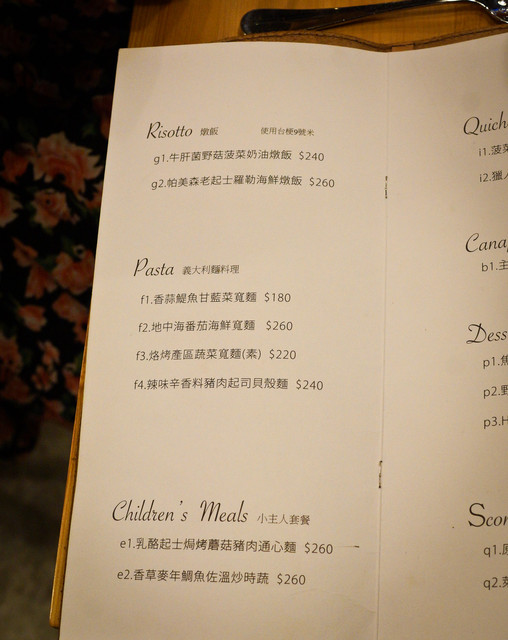 Risotto 燉飯 使用台梗9號米
g1.牛肝菌野菇菠菜奶油燉飯 $240
g2.帕美森老起士羅勒海鮮燉飯 $260
Pasta 義大利麵料理
f1.香蒜鯷魚甘藍菜寬麵 $180
f2.地中海番茄海鮮寬麵 $260
f3.烙烤產區蔬菜寬麵(素) $220
f4.辣味辛香料豬肉起司貝殼麵 $240
Children's Meals 小主人套餐
e1.乳酪起士焗烤蘑菇豬肉通心麵 $260
e2.香草麥年鯛魚佐溫炒時蔬 $260
Quich
i1.菠菜
i2.獵人
Cana
b1.主
Dess
p1.焦
p2.野
p3.H
Scon
q1.原
q2.